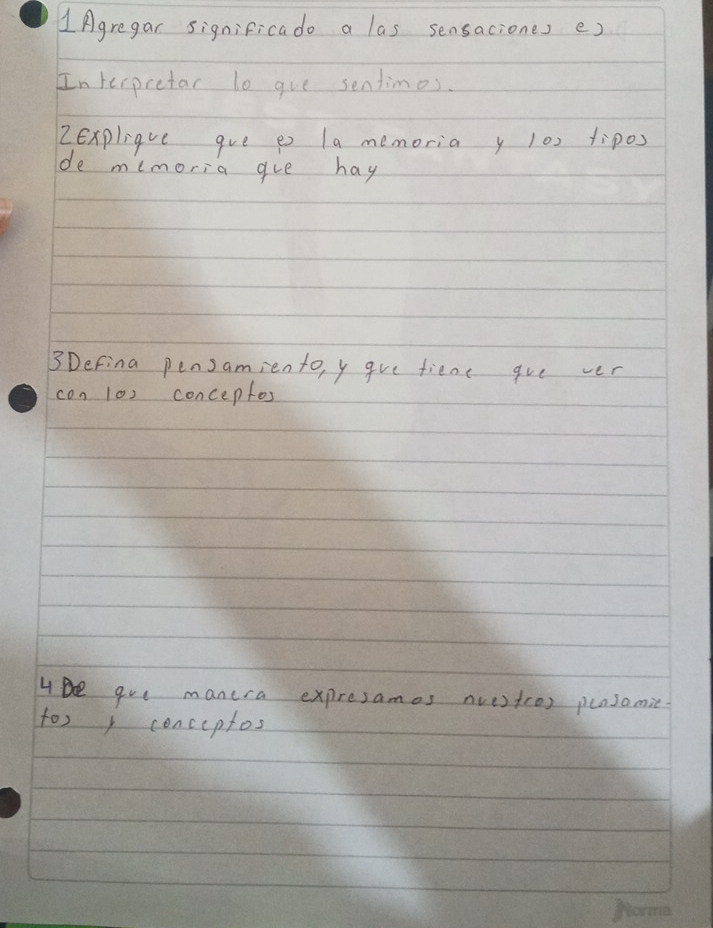 1 Agregar significado a las sensaciones es
Interpretar lo que sentimos.
2 Explique que es la memoria y los tipos
de memoria que hay
3 Defina pensamiento, y que tiene que ver
con los conceptos
4 De que manera expresamos nuestros pensamie-
tos y conceptos
Norma